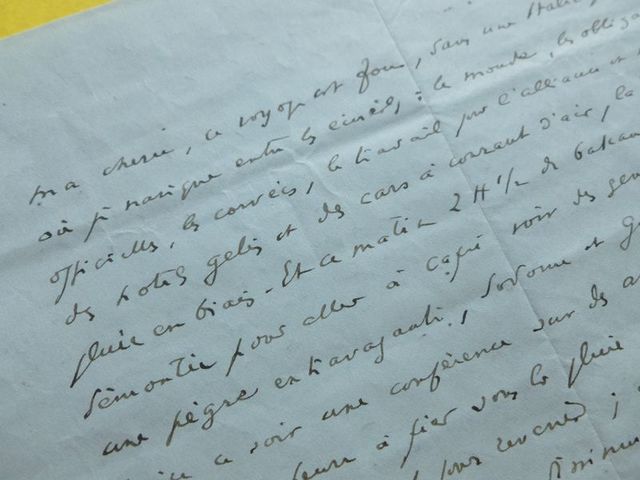 ma chérie, ce voyage est fou, dans une Italie
où je navigue entre les écueils, : le monde, les obliga
officielles, les corvées, le travail pour l'alliance et
des hotels gelés et des cars à courant d'air, la
pluie en biais - Et ce matin 2 H 1/2 de bateau
démontée pour aller à Capri voir des gens
une pègre extravagante, Sodome et G
ce soir une conférence sur des
heure à fier sous la pluie
pour revenir ;